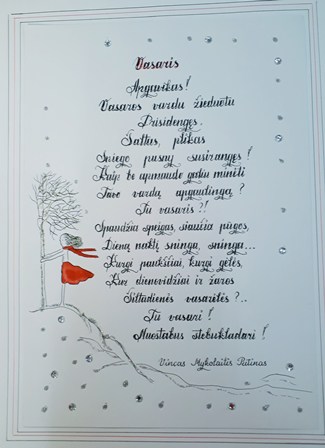 Vasaris
Apgavikas!
Vasaros vardu žieduotu
Prisidengęs.
Šaltas, plikas
Sniego pusny susirangęs!
Kaip be apmaudo galiu minėti
Tavo vardą apgaulingą?
Tu vasaris?!
Spaudžia speigas, siaučia pūgos,
Dieną naktį sninga, sninga...
Kurgi paukščiai, kurgi gėlės,
Kur dienovidžiai ir žaros
Šiltadienės vasarėlės?..
Tu vasari!
Nuostabus stebukladari!
Vincas Mykolaitis Putinas